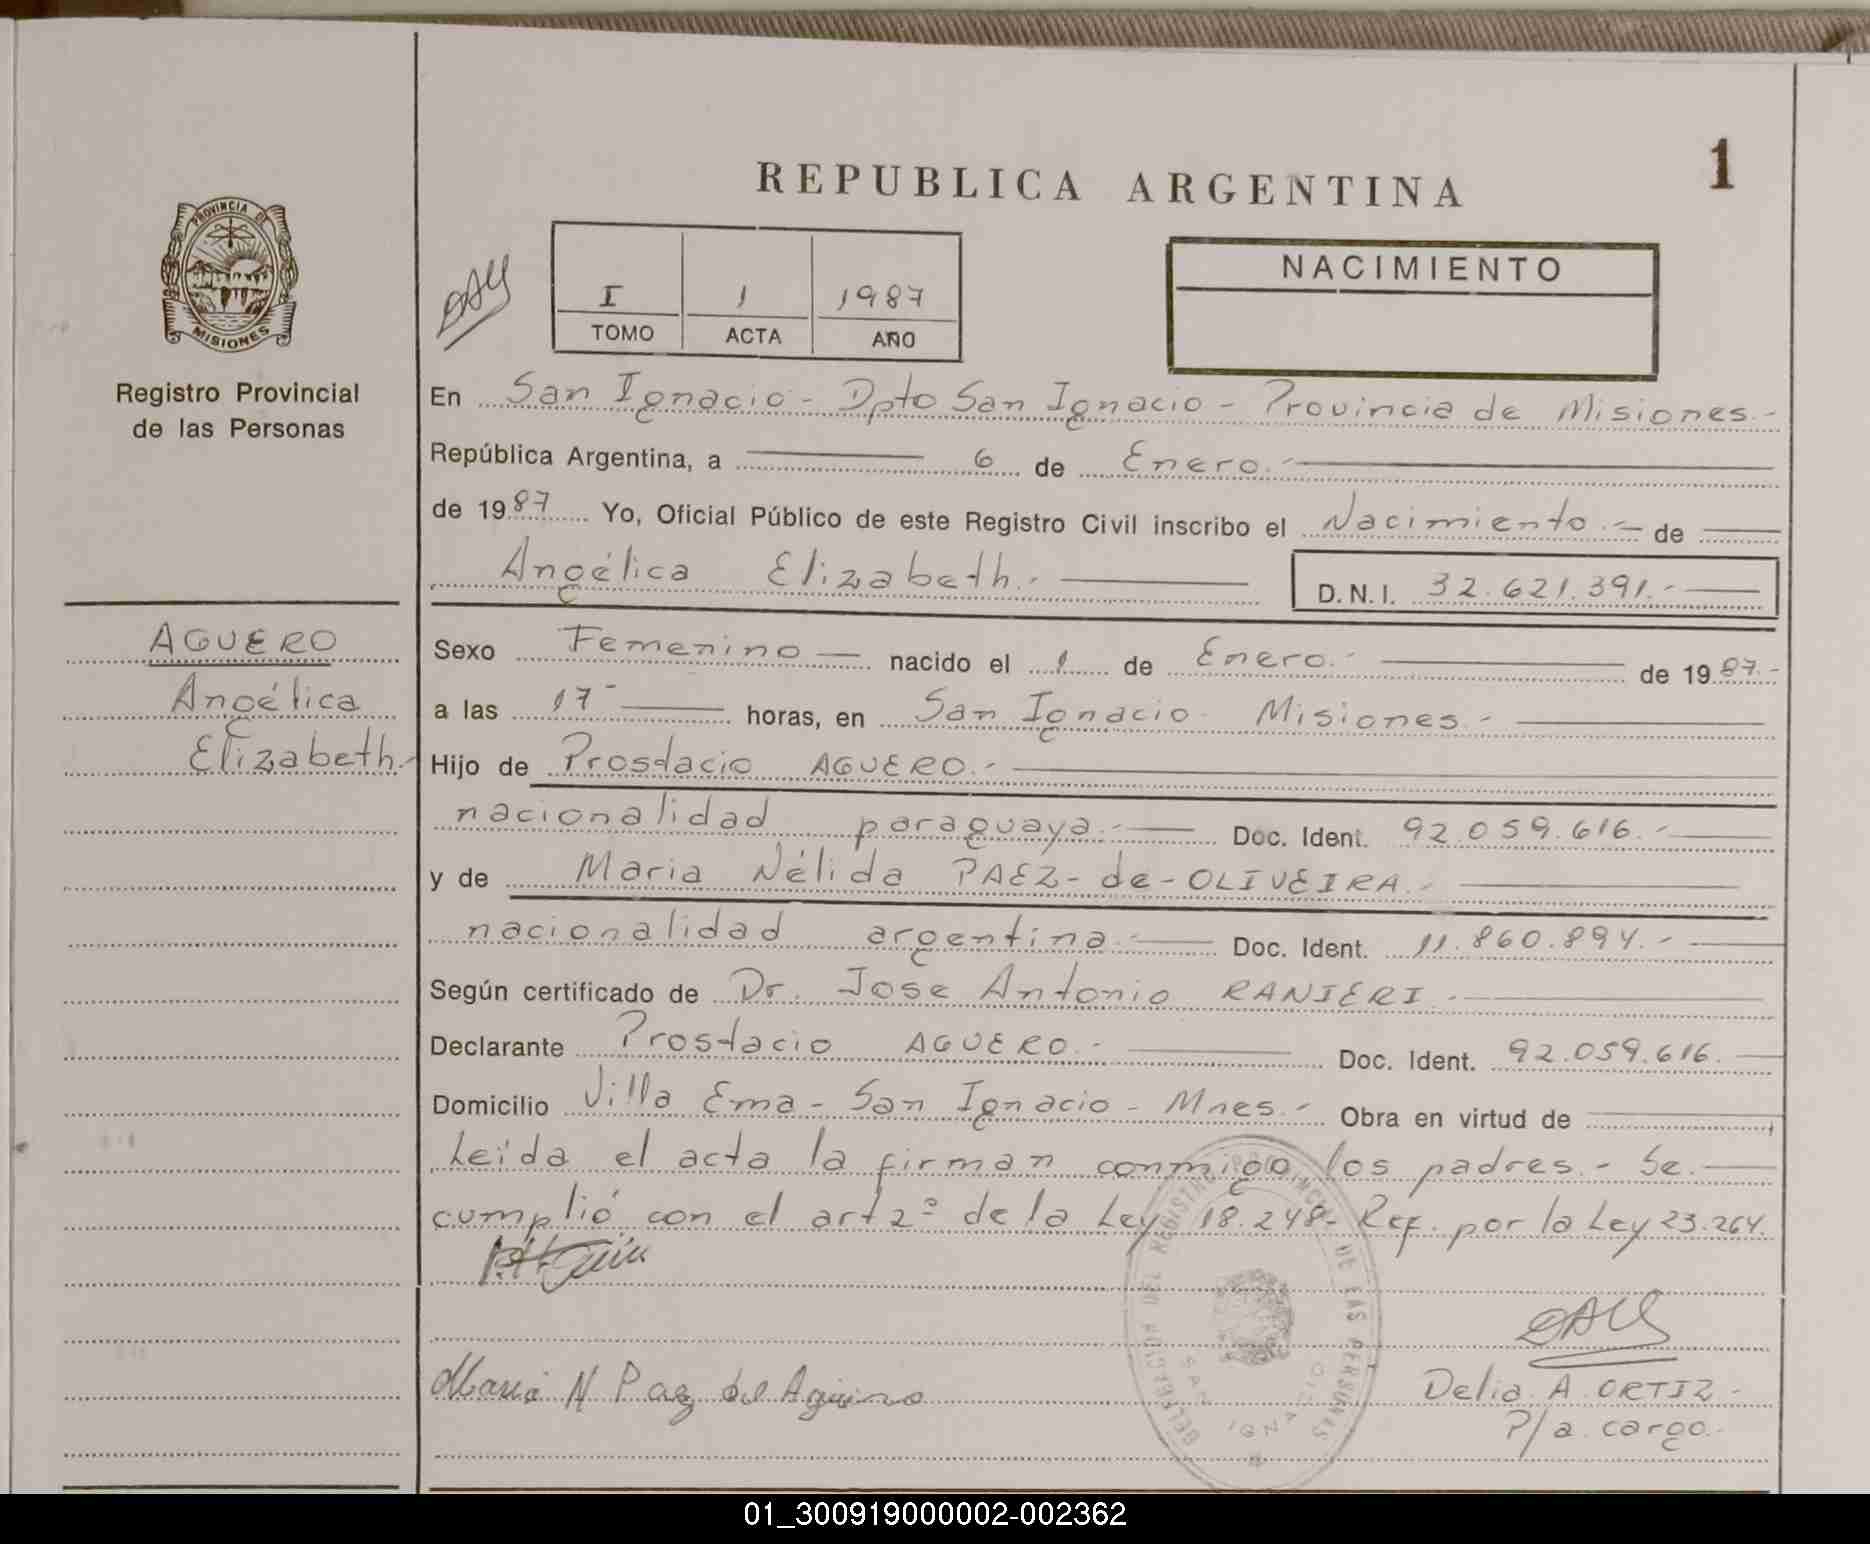 1
REPUBLICA ARGENTINA
PROVINCIA DE
MISIONES
Registro Provincial
de las Personas
I 1 1987
TOMO ACTA AÑO
NACIMIENTO
En San Ignacio - Dpto San Ignacio - Provincia de Misiones.-
República Argentina, a 6 de Enero.-
de 1987 Yo, Oficial Público de este Registro Civil inscribo el Nacimiento.- de
Angélica Elizabeth.- D.N.I. 32.621.391.-
AGUERO
Angélica
Elizabeth.-
Sexo Femenino — nacido el 1 de Enero.- de 1987.-
a las 17 horas, en San Ignacio- Misiones.-
Hijo de Prostacio AGUERO.-
nacionalidad paraguaya.- Doc. Ident. 92.059.616.-
y de Maria Nélida PAEZ-de-OLIVEIRA.-
nacionalidad argentina.- Doc. Ident. 11.860.894.-
Según certificado de Dr. Jose Antonio RANIERI.-
Declarante Prostacio AGUERO.- Doc. Ident. 92.059.616.
Domicilio Villa Ema - San Ignacio - Mnes.- Obra en virtud de
Leída el acta la firman conmigo los padres.- Se.
cumplió con el art 2º de la Ley 18.248- Ref. por la Ley 23.264.
Maria N Paez de Aguero
REGISTRO PROVINCIAL DE LAS PERSONAS
SAN IGNACIO
Delia A. ORTIZ.-
P/a. cargo.-
01_300919000002-002362